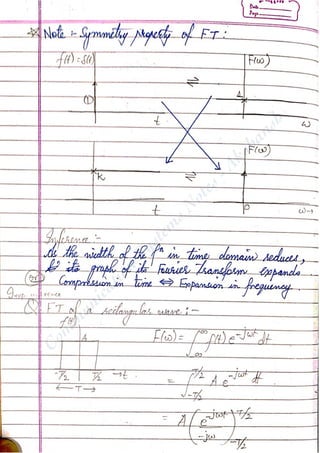 Date
Page
Note :- Symmetry property of FT :
f(t) = δ(t)
⇌
F(ω)
①
1
t
ω
F(ω)
k
⇌
t
ω→
Inference :-
As the width of the fⁿ in time domain reduces,
its graph of its Fourier Transform expands.
Compression in time ⇔ Expansion in frequency.
FT of a rectangular wave :-
f(t)
A
-T/2 T/2 →t
← T →
F(ω) = ∫_{-∞}^{∞} f(t) e^{-jωt} dt
= ∫_{-T/2}^{T/2} A e^{-jωt} dt
= A (e^{-jωt} / -jω)_{-T/2}^{T/2}